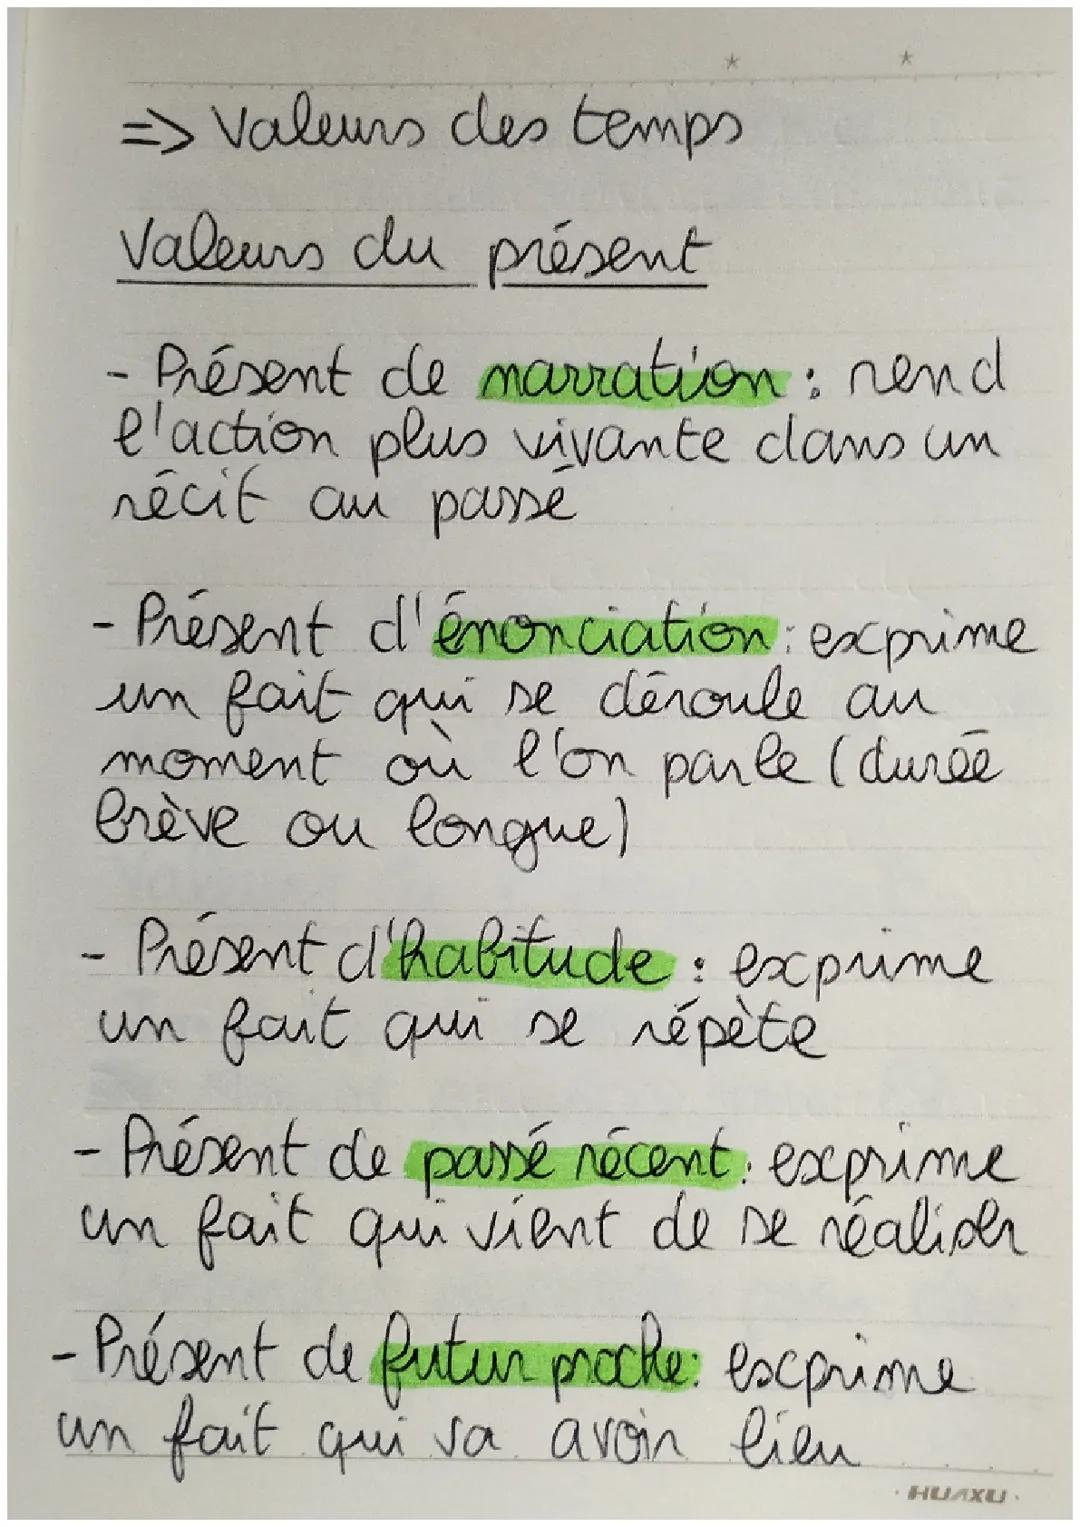 => Valeurs des temps
Valeurs du présent
- Présent de narration : rend
l'action plus vivante dans un
récit au passé
- Présent d'énonciation : exprime
un fait qui se déroule au
moment où l'on parle (durée
brève ou longue)
- Présent d'habitude : exprime
un fait qui se répète
- Présent de passé récent : exprime
un fait qui vient de se réaliser
- Présent de futur proche : exprime
un fait qui va avoir lieu
· HUAXU ·